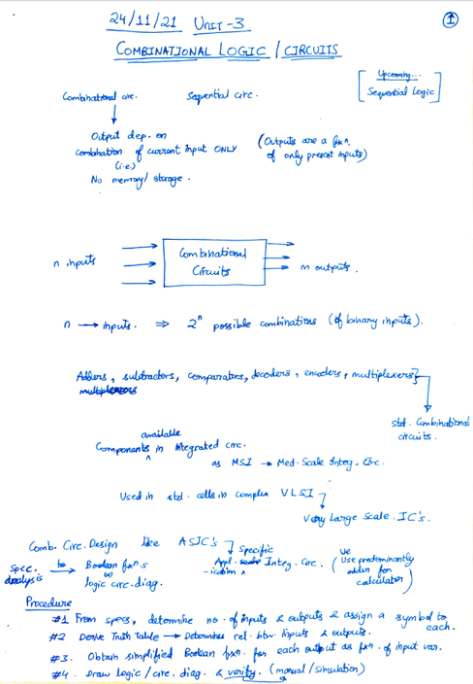 24/11/21 UNIT-3
①
COMBINATIONAL LOGIC / CIRCUITS
[Upcoming...
Sequential Logic]
Combinational circ. Sequential circ.
Output dep. on
combination of current input ONLY (Outputs are a fxn.
(i.e) of only present inputs)
No memory/ storage.
n inputs
Combinational
Circuits
m outputs.
n → inputs. ⇒ 2ⁿ possible combinations (of binary inputs).
Adders, subtractors, comparators, decoders, encoders, multiplexers}
multiplexers
std. Combinational
circuits.
available
Components in Integrated circ.
as MSI → Med. Scale Integ. Circ.
Used in std. cells in complex VLSI
Very Large Scale. IC's.
Comb. Circ. Design like ASIC's
Specific
Spec. to Boolean fxn.s
analysis to logic circ. diag.
Integ. Circ. (Use predominantly
adder for
calculator)
Procedure
#1 From specs, determine no. of inputs & outputs & assign a symbol to
each.
#2 Derive Truth Table → Determines rel. btw inputs & outputs.
#3. Obtain simplified Boolean fxn. for each output as fxn. of input var.
#4. Draw logic / circ. diag. & verify. (manual / simulation)